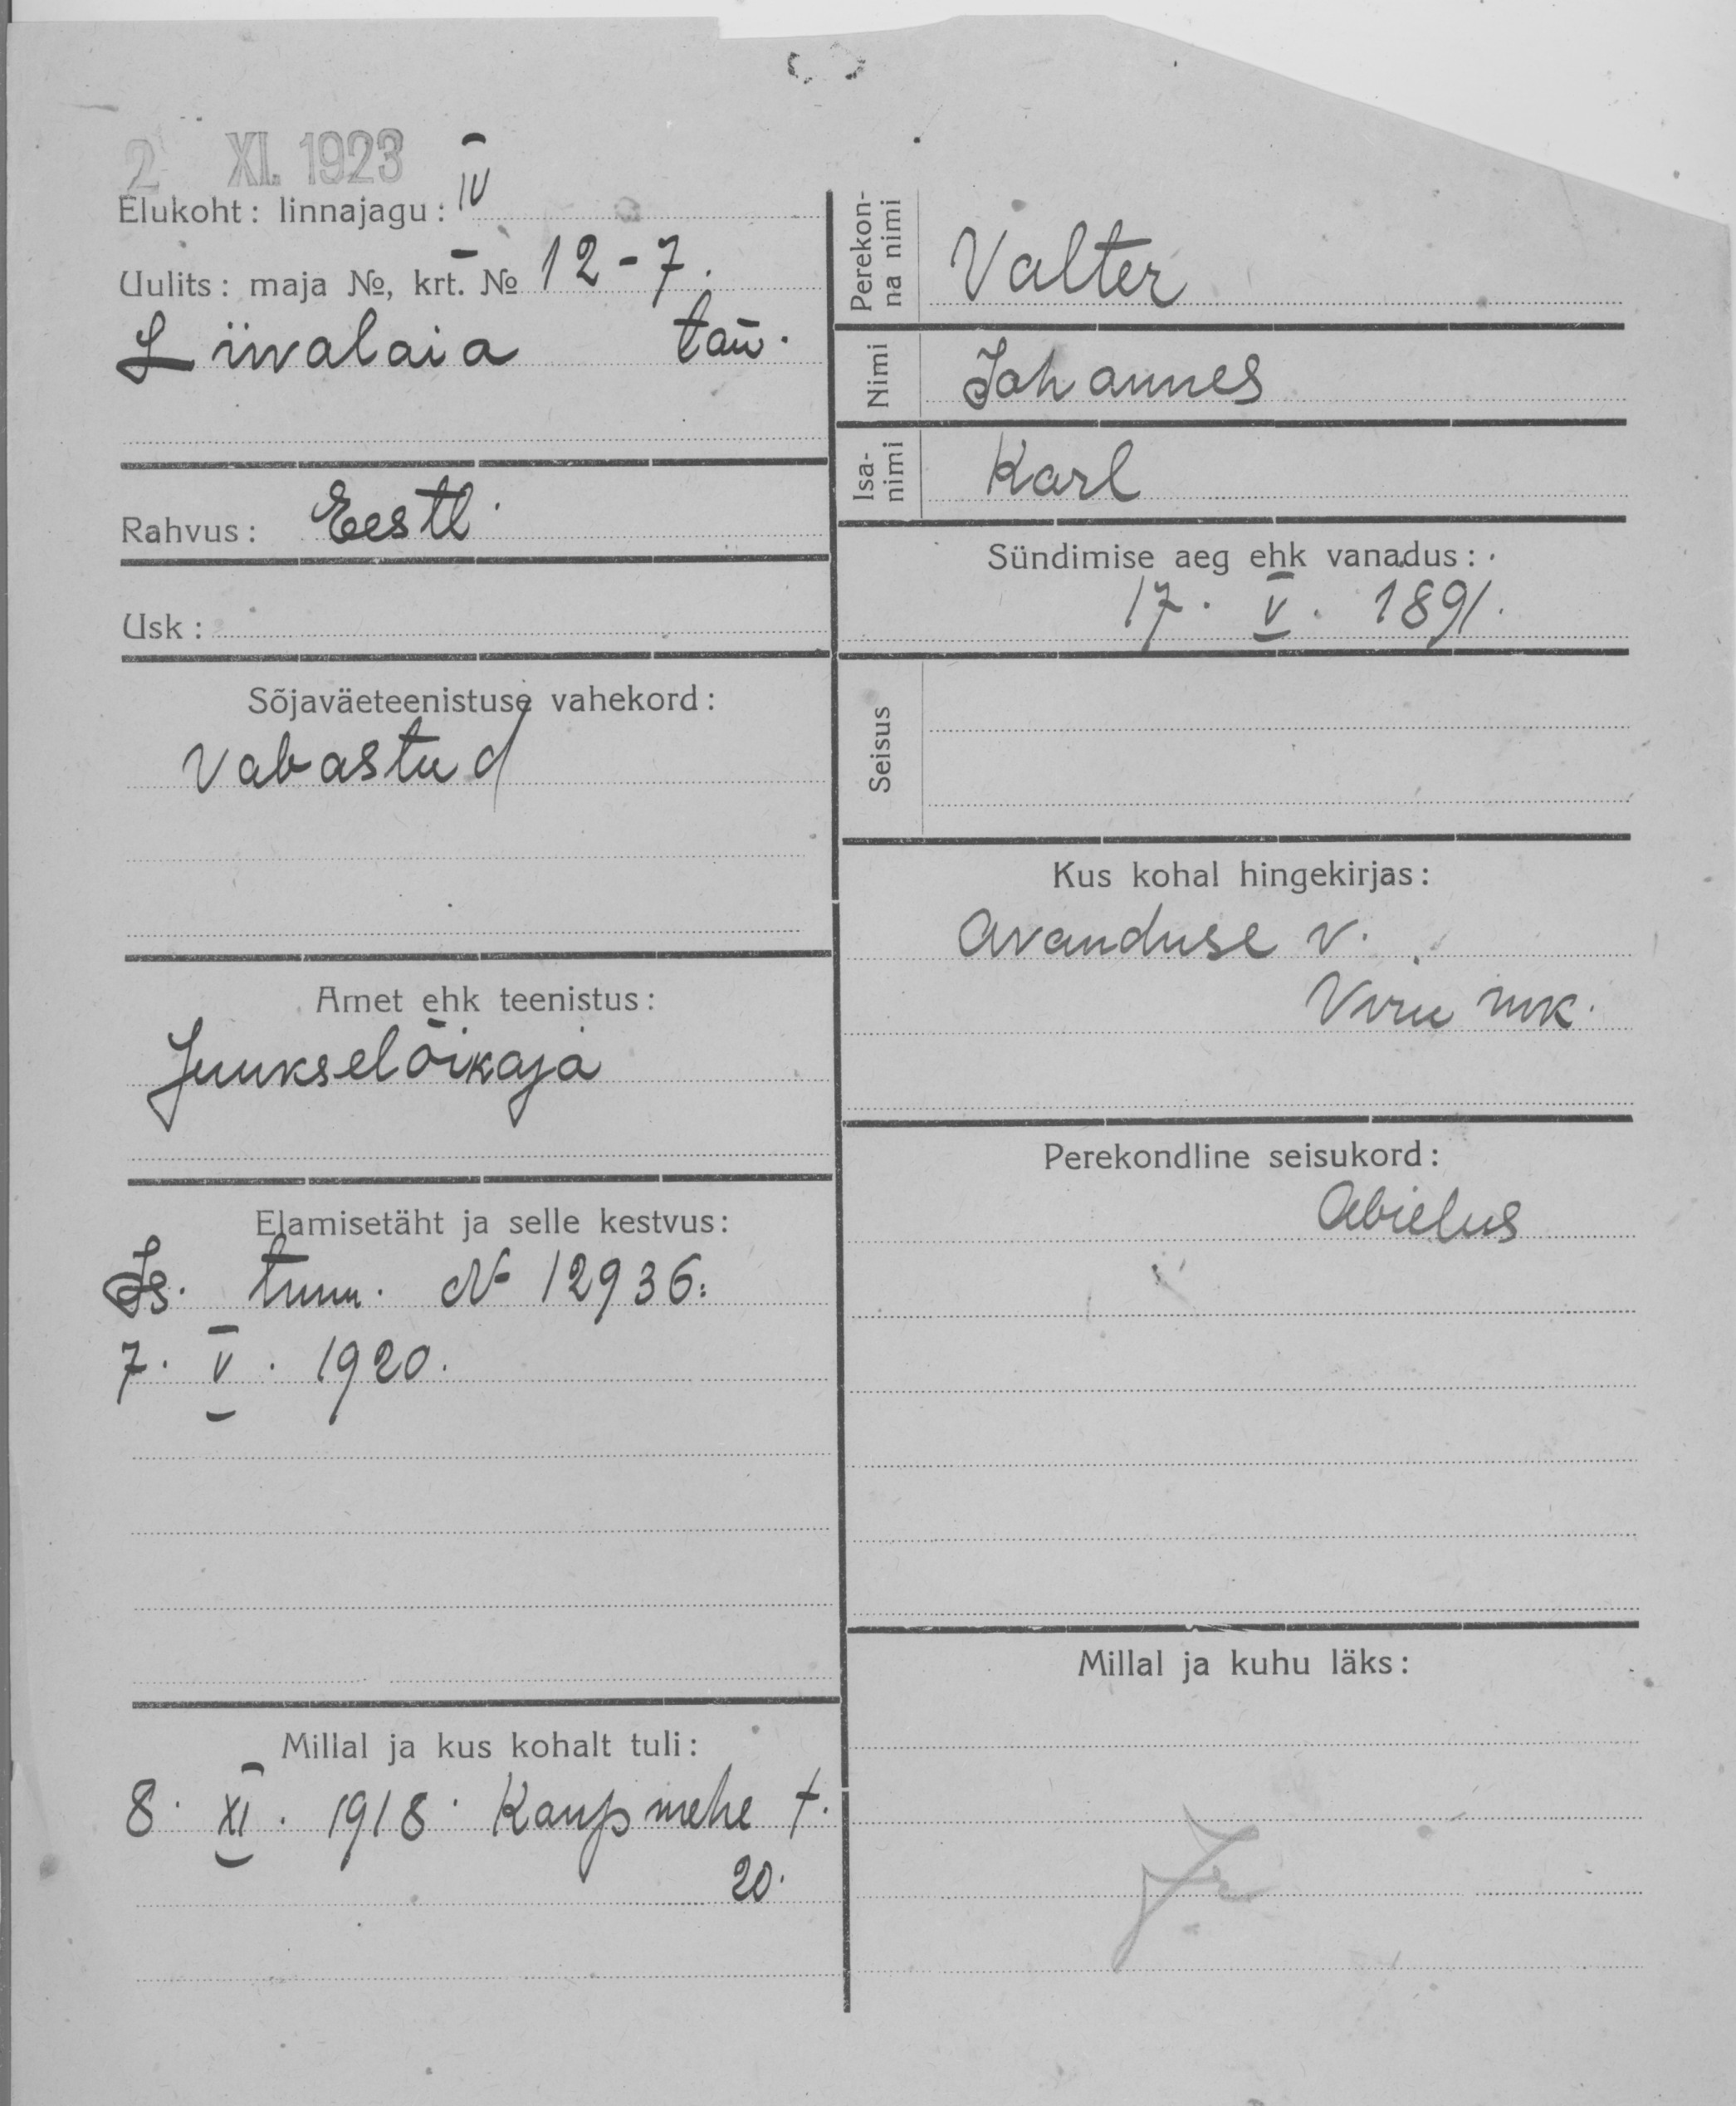 2 XI. 1923
Elukoht: linnajagu: IV
Uulits: maja №, krt. № 12-7.
Liivalaia tän.
Rahvus: Eestl.
Usk:
Sõjaväeteenistuse vahekord:
Vabastud
Amet ehk teenistus:
Juukselõikaja
Elamisetäht ja selle kestvus:
Is. tunn. № 12936.
7. V. 1920.
Millal ja kus kohalt tuli:
8. XI. 1918. Kaupmehe t.
20.
Perekon-
na nimi
Valter
Nimi
Johannes
Isa-
nimi
Karl
Sündimise aeg ehk vanadus:
17. V. 1891.
Seisus
Kus kohal hingekirjas:
Avanduse v.
Viru mk.
Perekondline seisukord:
Abielus
Millal ja kuhu läks: